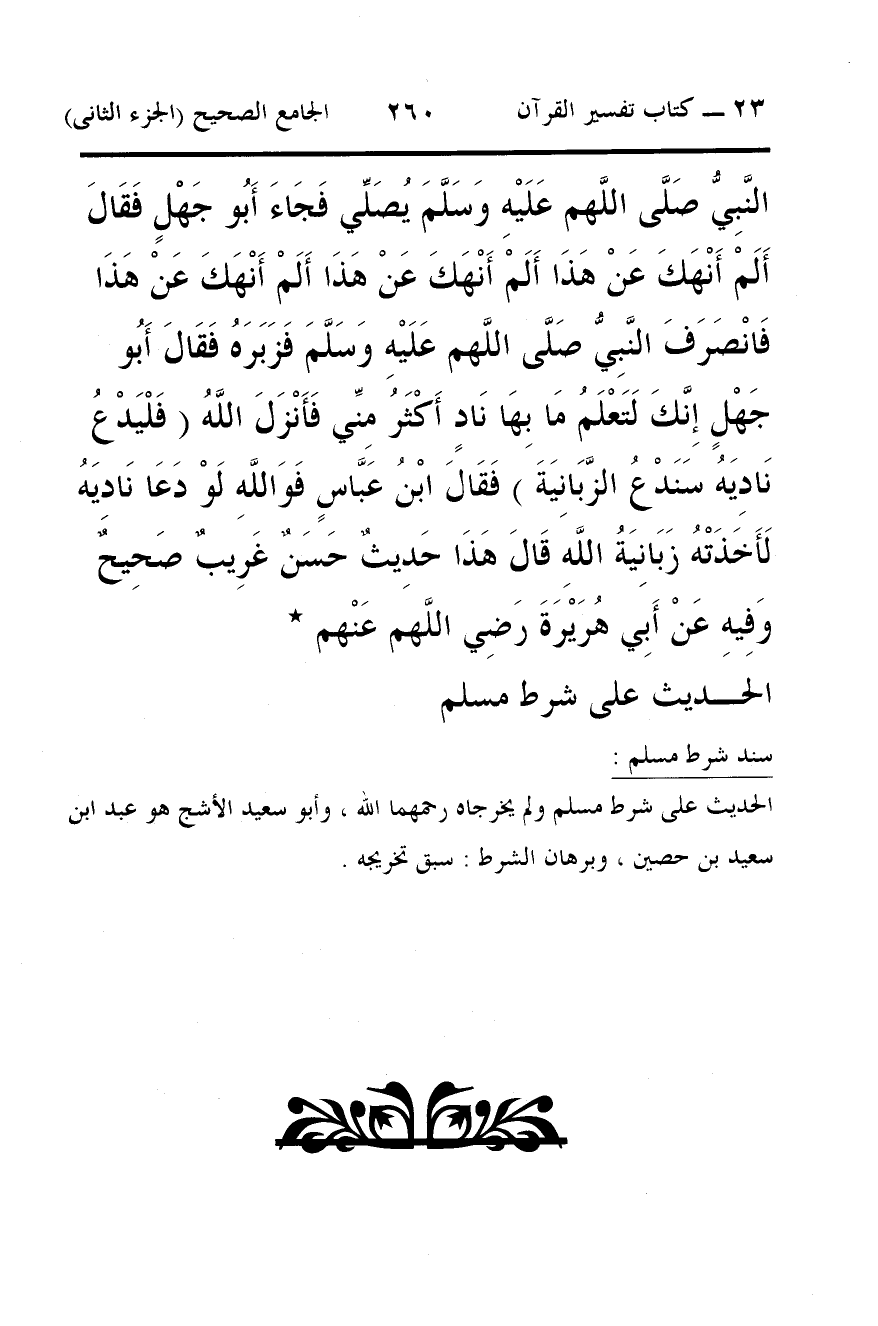 ٢٣ ـــ كتاب تفسير القرآن ٢٦٠ الجامع الصحيح (الجزء الثانى)
النَّبِيُّ صَلَّى اللَّهم عَلَيْهِ وَسَلَّمَ يُصَلِّي فَجَاءَ أَبُو جَهْلٍ فَقَالَ
أَلَمْ أَنْهَكَ عَنْ هَذَا أَلَمْ أَنْهَكَ عَنْ هَذَا أَلَمْ أَنْهَكَ عَنْ هَذَا
فَانْصَرَفَ النَّبِيُّ صَلَّى اللَّهم عَلَيْهِ وَسَلَّمَ فَزَبَرَهُ فَقَالَ أَبُو
جَهْلٍ إِنَّكَ لَتَعْلَمُ مَا بِهَا نَادٍ أَكْثَرُ مِنِّي فَأَنْزَلَ اللَّهُ ( فَلْيَدْعُ
نَادِيَهُ سَنَدْعُ الزَّبَانِيَةَ ) فَقَالَ ابْنُ عَبَّاسٍ فَوَاللَّهِ لَوْ دَعَا نَادِيَهُ
لَأَخَذَتْهُ زَبَانِيَةُ اللَّهِ قَالَ هَذَا حَدِيثٌ حَسَنٌ غَرِيبٌ صَحِيحٌ
وَفِيهِ عَنْ أَبِي هُرَيْرَةَ رَضِي اللَّهم عَنْهم *
الحـــديث على شرط مسلم
سند شرط مسلم :
الحديث على شرط مسلم ولم يخرجاه رحمهما الله ، وأبو سعيد الأشج هو عبد ابن
سعيد بن حصين ، وبرهان الشرط : سبق تخريجه .